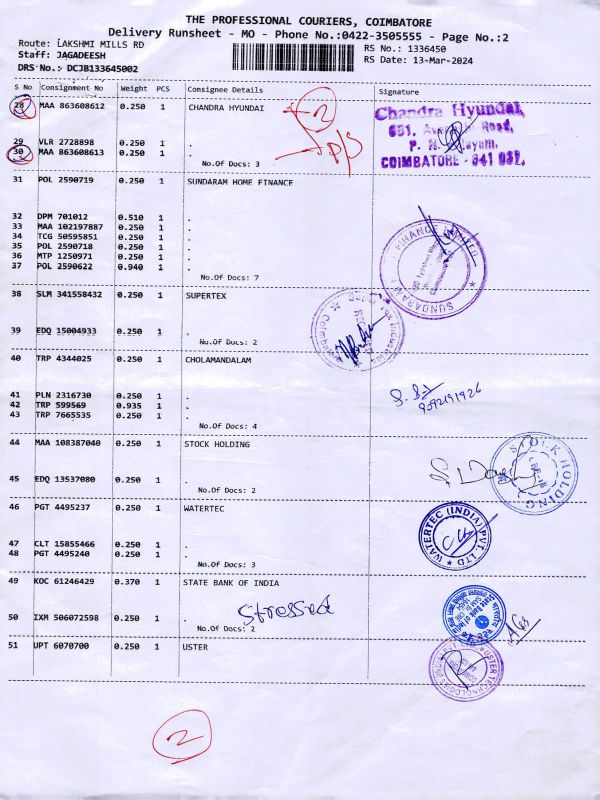 THE PROFESSIONAL COURIERS, COIMBATORE
Delivery Runsheet - MO - Phone No.:0422-3505555 - Page No.:2
Route: LAKSHMI MILLS RD
RS No.: 1336450
Staff: JAGADEESH
RS Date: 13-Mar-2024
DRS No.: DCJB133645002
S No Consignment No Weight PCS Consignee Details Signature
28 MAA 863608612 0.250 1 CHANDRA HYUNDAI
2
Chandra Hyundai,
Road,
COIMBATORE - 641 037.
29 VLR 2728898 0.250 1 .
30 MAA 863608613 0.250 1 .
P/S
No.Of Docs: 3
31 POL 2590719 0.250 1 SUNDARAM HOME FINANCE
32 DPM 701012 0.510 1 .
33 MAA 102197887 0.250 1 .
34 TCG 50595851 0.250 1 .
35 POL 2590718 0.250 1 .
36 MTP 1250971 0.250 1 .
37 POL 2590622 0.940 1 .
No.Of Docs: 7
SUNDARAM FINANCE LIMITED
38 SLM 341558432 0.250 1 SUPERTEX
39 EDQ 15004933 0.250 1 .
No.Of Docs: 2
40 TRP 4344025 0.250 1 CHOLAMANDALAM
41 PLN 2316730 0.250 1 .
42 TRP 599569 0.935 1 .
43 TRP 7665535 0.250 1 .
No.Of Docs: 4
9092191926
44 MAA 108387040 0.250 1 STOCK HOLDING
45 EDQ 13537080 0.250 1 .
No.Of Docs: 2
STOCK HOLDING
46 PGT 4495237 0.250 1 WATERTEC
47 CLT 15855466 0.250 1 .
48 PGT 4495240 0.250 1 .
No.Of Docs: 3
WATERTEC (INDIA) PVT. LTD
49 KOC 61246429 0.370 1 STATE BANK OF INDIA
50 IXM 506072598 0.250 1 .
Stressed
No.Of Docs: 2
State Bank of India
51 UPT 6070700 0.250 1 USTER
USTER TECHNOLOGIES
2